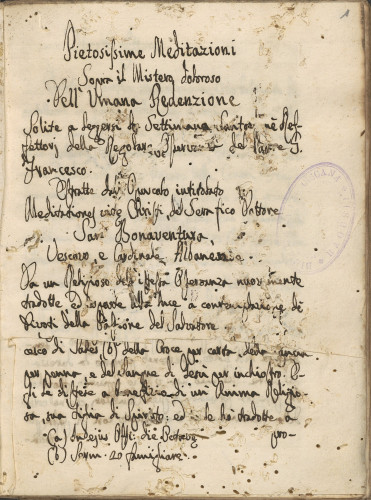 Pietosissime Meditazioni
Sopra il Mistero doloroso
Dell' Umana Redenzione
Solite a leggersi la Settimana Santa ne Ref-
fettorj della Regolar Osservanza del Padre S.
Francesco.
Estratte dal Opuscolo intitolato
Meditationes vitæ Christi, del Serafico Dottore
San Bonaventura
Vescovo e Cardinale Albanese
Da un Religioso dell' istessa Osservanza nuovamente
tradotte ed esposte alla luce a contemplazione di
Divoti della Passione del Salvatore
della Croce per carta, della
per penna, e del Sangue di Gesù per inchiostro. E-
gli le distese a benefizio di un' Anima Religio-
sa, sua figlia di Spirito: ed io le ho tradotte a
(a) Offi: die pro-
(b) Serm. 20